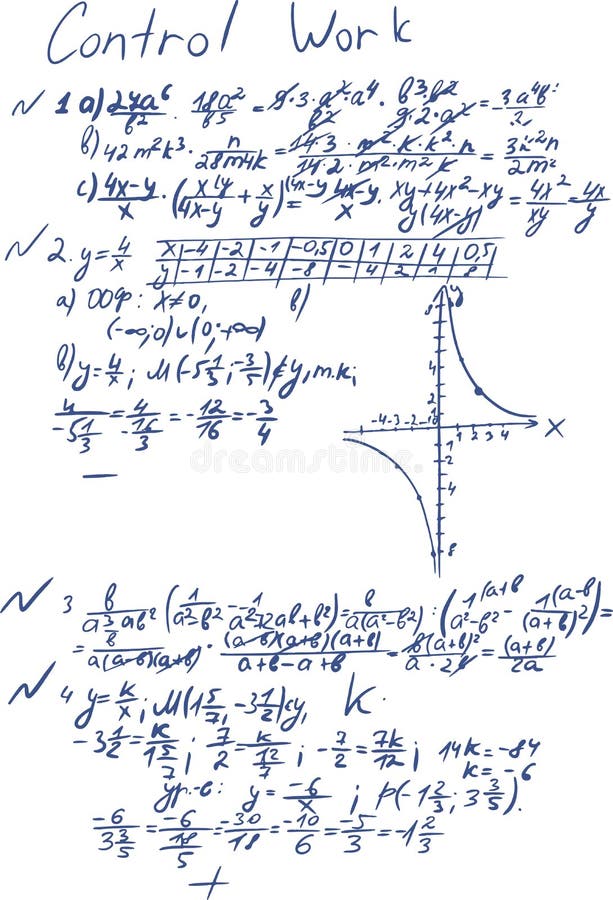 Control Work
№ 1 a) 27a⁶/b² · 18a²/b⁵ = 9·3·a²·a⁴/b² · b³·b²/9·2·a² = 3a⁴b³/2
b) 42m²k³ · n/28m⁴k = 14·3·m²·k·k²·n/14·2·m²·m²k = 3k²n/2m²
c) 4x-y/x · (x/4x-y + x/y) = (4x-y)/x · xy+4x²-xy/y(4x-y) = 4x²/xy = 4x/y
№ 2. y=4/x x -4 -2 -1 -0,5 0 1 2 4 0,5
y -1 -2 -4 -8 - 4 2 1 8
a) ООФ: x≠0, в)
(-∞;0)∪(0;+∞)
в) y=4/x; M(-5 1/3; -3/5)∉y, т.к;
4/-5 1/3 = 4/-16/3 = -12/16 = -3/4
—
y
8
4
2
1
-4 -3 -2 -1 0 1 2 3 4 X
1
2
4
8
№ 3 b/a³-ab² : (1/a²-b² - 1/a²+2ab+b²) = b/a(a²-b²) : (1(a+b/a²-b² - 1(a-b)/(a+b)²) =
= b/a(a-b)(a+b) · (a-b)(a+b)(a+b)/a+b-a+b = b(a+b)²/a·2b = (a+b)/2a
№ 4 y=k/x; M(1 5/7, -3 1/2)∈y, k.
-3 1/2 = k/1 5/7; 7/2 = k/12/7; -7/2 = 7k/12; 14k = -84
k = -6
ур-е: y = -6/x; P(-1 2/3; 3 3/5).
-6/3 3/5 = -6/18/5 = -30/18 = -10/6 = -5/3 = -1 2/3
+
dreamstime